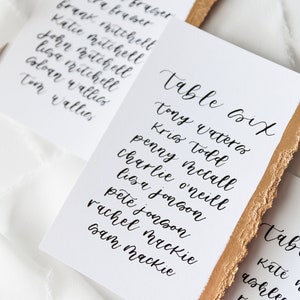 frank mitchell
katie mitchell
john mitchell
lisa mitchell
sloan wallis
tom wallis
table six
tony waters
kris todd
penny mccall
charlie o'neill
lisa jonson
pete jonson
rachel mackie
sam mackie
table
kate
ashley